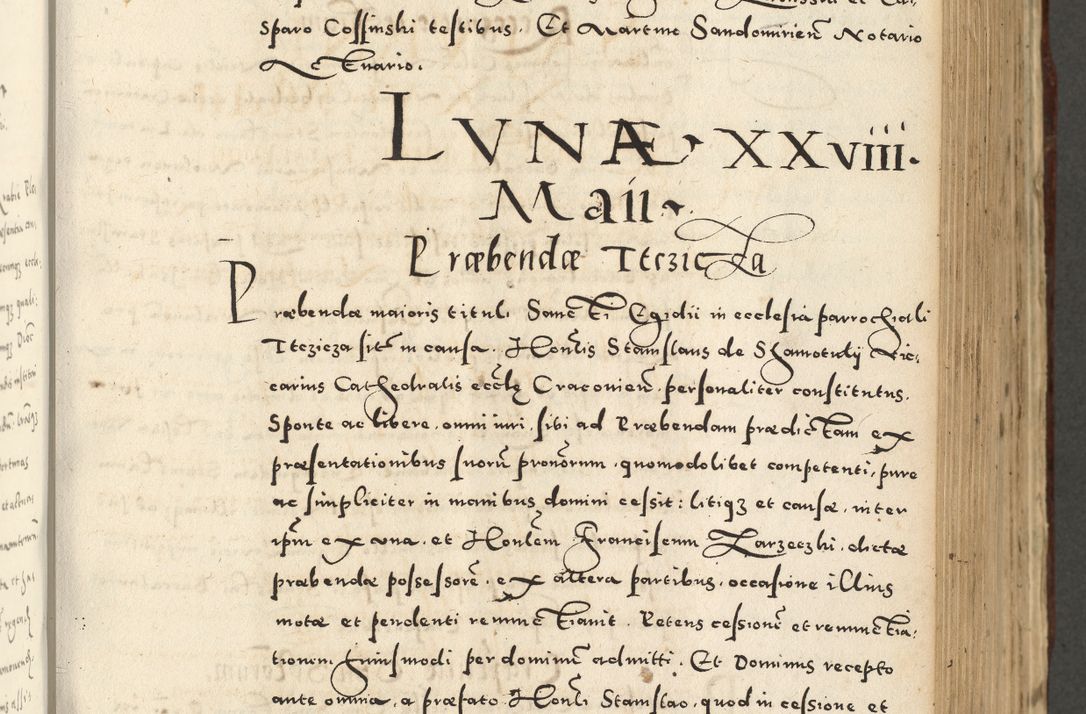 sparo Cossinski testibus. Et Martino Sandomirieñ Notario
Actuario.
LVNÆ · XXviii·
Maii·
Præbendæ Tczicza
Præbendæ maioris tituli Sancti Egidii in ecclesia parrochiali
Tczicza sit̃ in causa. Honłis Stanislaus de Shamotuly Vic:
carius Cathedralis eccłę Cracovieñ. personaliter constitutus.
Sponte ac libere. omni iuri. sibi ad Præbendam prædictam ex
præsentationibus suorũ pronõrum. quomodolibet competenti, pure
ac simpliciter in manibus domini cessit: litiqꝫ et causæ. inter
ip̃m ex una. et Honłem Franciscum Zarzeczki. dictæ
præbendæ possessorẽ. ex altera partibus. occasione illius
motæ et pendenti renunctiavit. Petens cessionẽ et renunctia:
tionem huiusmodi per dominum admitti. Et Dominus recepto
ante omnia. a præfato Honłi Stanislao. quod in cessione et